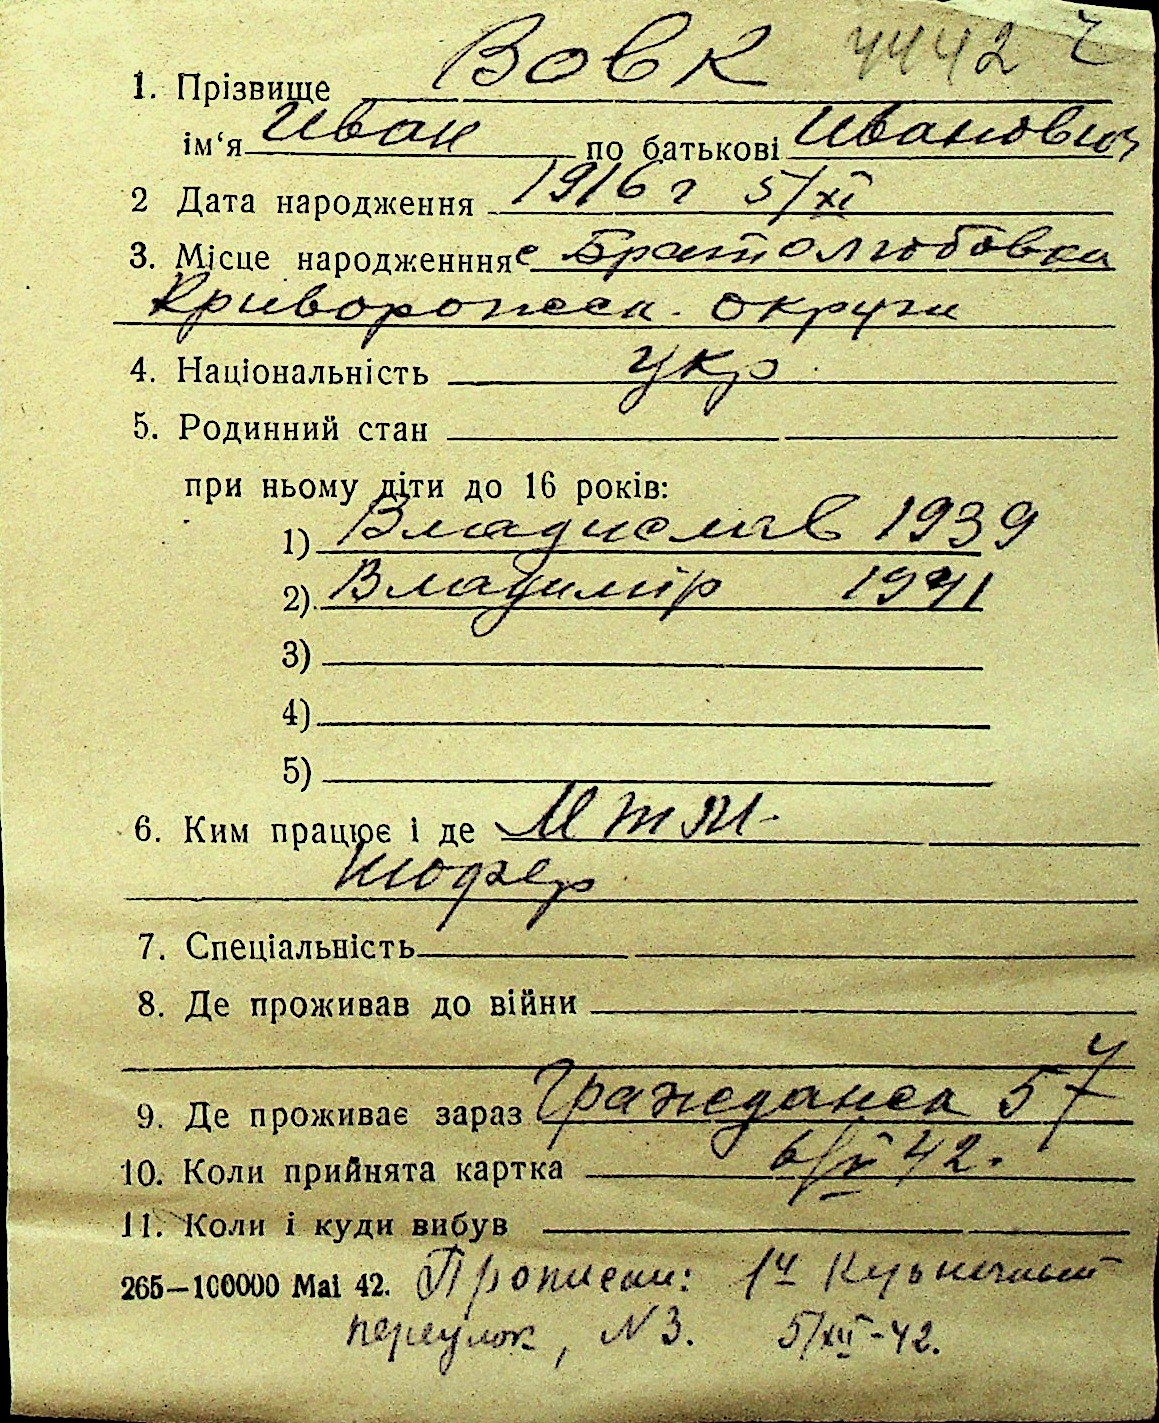 1. Прізвище Вовк 4442
ім‘я Иван по батькові Иванович
2 Дата народження 1916 г 5/XI
3. Місце народженння с Братолюбовка
Криворожск. округи
4. Національність укр
5. Родинний стан
при ньому діти до 16 років:
1) Владислав 1939
2) Владимір 1941
3)
4)
5)
6. Ким працює і де
шофер
7. Спеціальність
8. Де проживав до війни
9. Де проживає зараз Гражданск 57
10. Коли прийнята картка 42.
11. Коли і куди вибув
265—100000 Mai 42. Прописан: 1й Кузнечный
переулок, N 3. 5/XII-42.